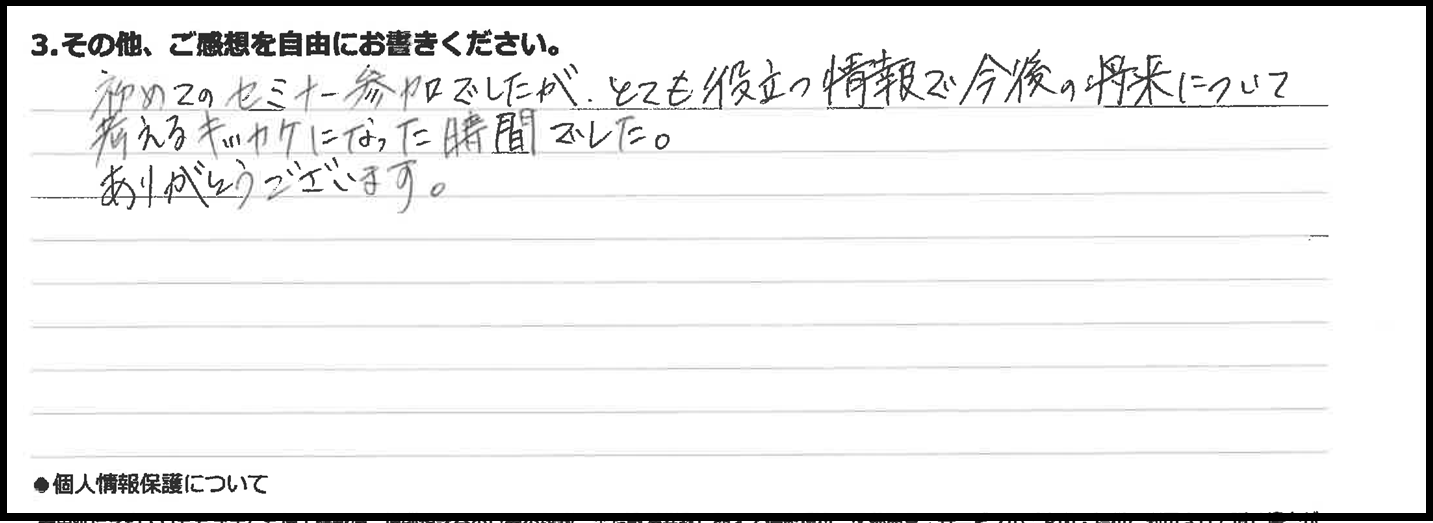 3.その他、ご感想を自由にお書きください。
初めてのセミナー参加でしたが、とても役立つ情報で今後の将来について
考えるキッカケになった時間でした。
ありがとうございます。
●個人情報保護について